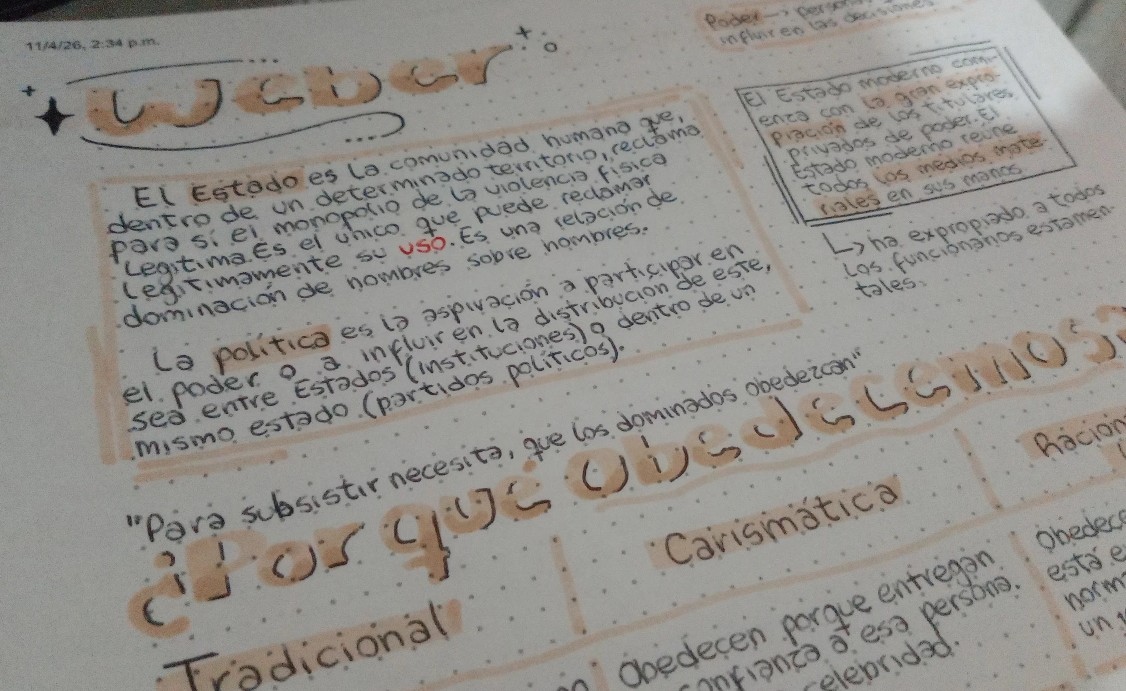 11/4/26, 2:34 p.m.
Weber
El Estado es la comunidad humana que,
dentro de un determinado territorio, reclama
para sí el monopolio de la violencia física
legítima. Es el único que puede reclamar
legitimamente su uso. Es una relación de
dominación de hombres sobre hombres.
La política es la aspiración a participar en
el poder o a influir en la distribución de este,
sea entre Estados (instituciones) o dentro de un
mismo estado (partidos políticos).
Poder →
influir en las decisiones
El Estado moderno comi-
enza con la gran expro-
piación de los titulares
privados de poder. El
Estado moderno reúne
todos los medios mate-
riales en sus manos.
↳ ha expropiado a todos
los funcionarios estamen-
tales.
"Para subsistir necesita, que los dominados obedezcan"
¿Por qué obedecemos?
Tradicional
Carismática
Obedecen porque entregan
confianza a esa persona.
celebridad.
Racion
Obedece
está e
norm
un